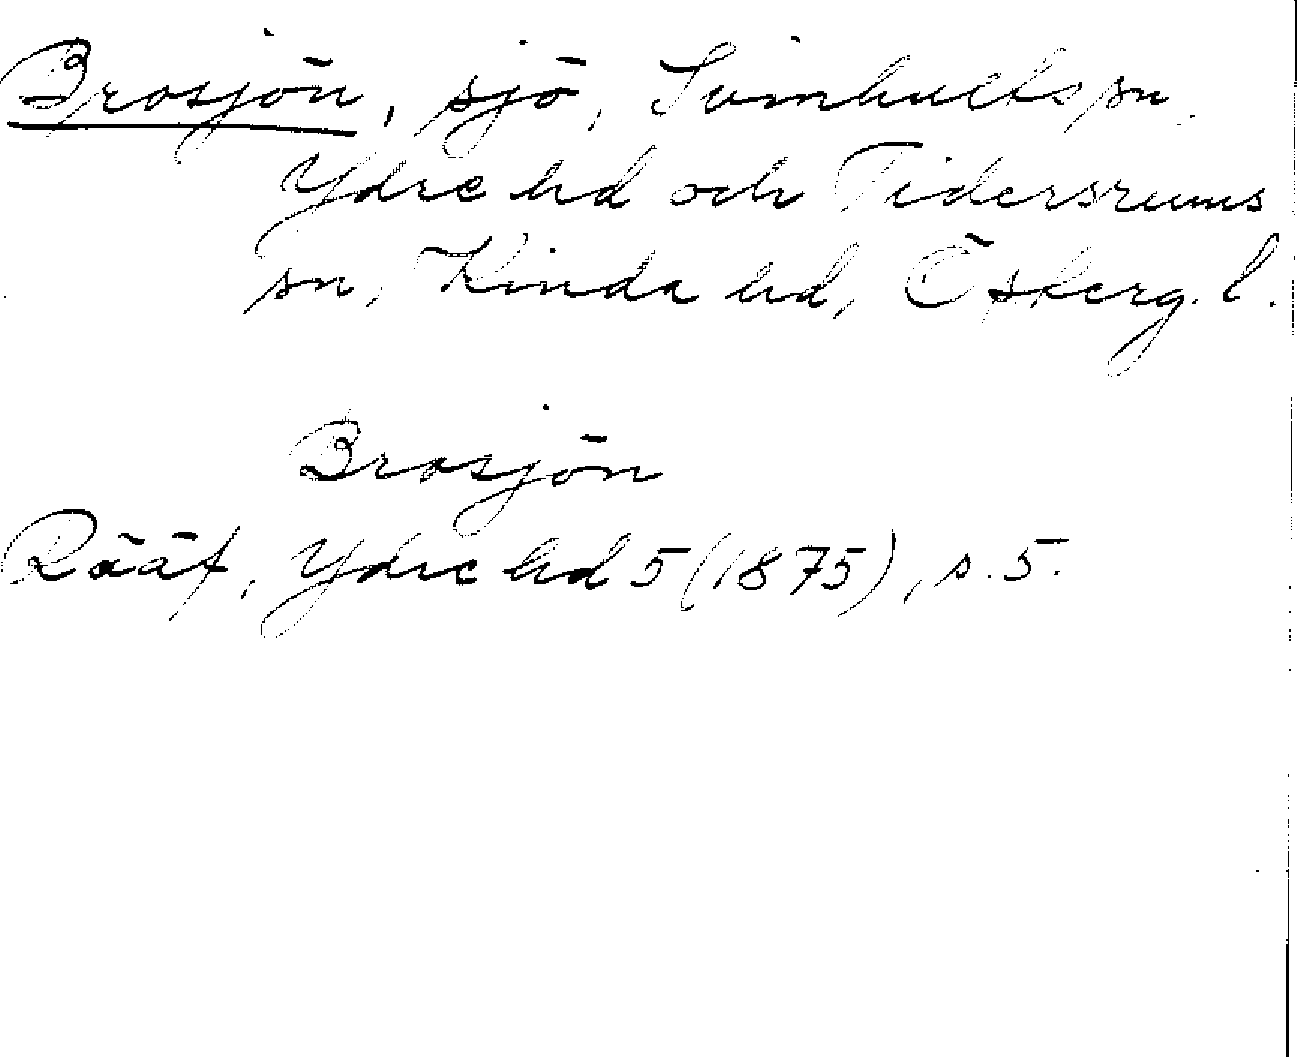 Brosjön, sjö, Svinhults sn
Ydre hd och Tidersrums
sn, Kinda hd, Österg. l.
Brosjön
Rääf, Ydre hd 5 (1875), s. 5.